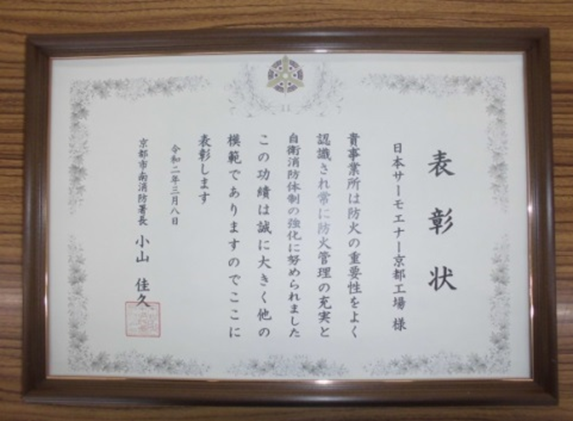 表彰状
日本サーモエナー京都工場 様
貴事業所は防火の重要性をよく
認識され常に防火管理の充実と
自衛消防体制の強化に努められました
この功績は誠に大きく他の
模範でありますのでここに
表彰します
令和二年三月八日
京都市南消防署長 小山 佳久